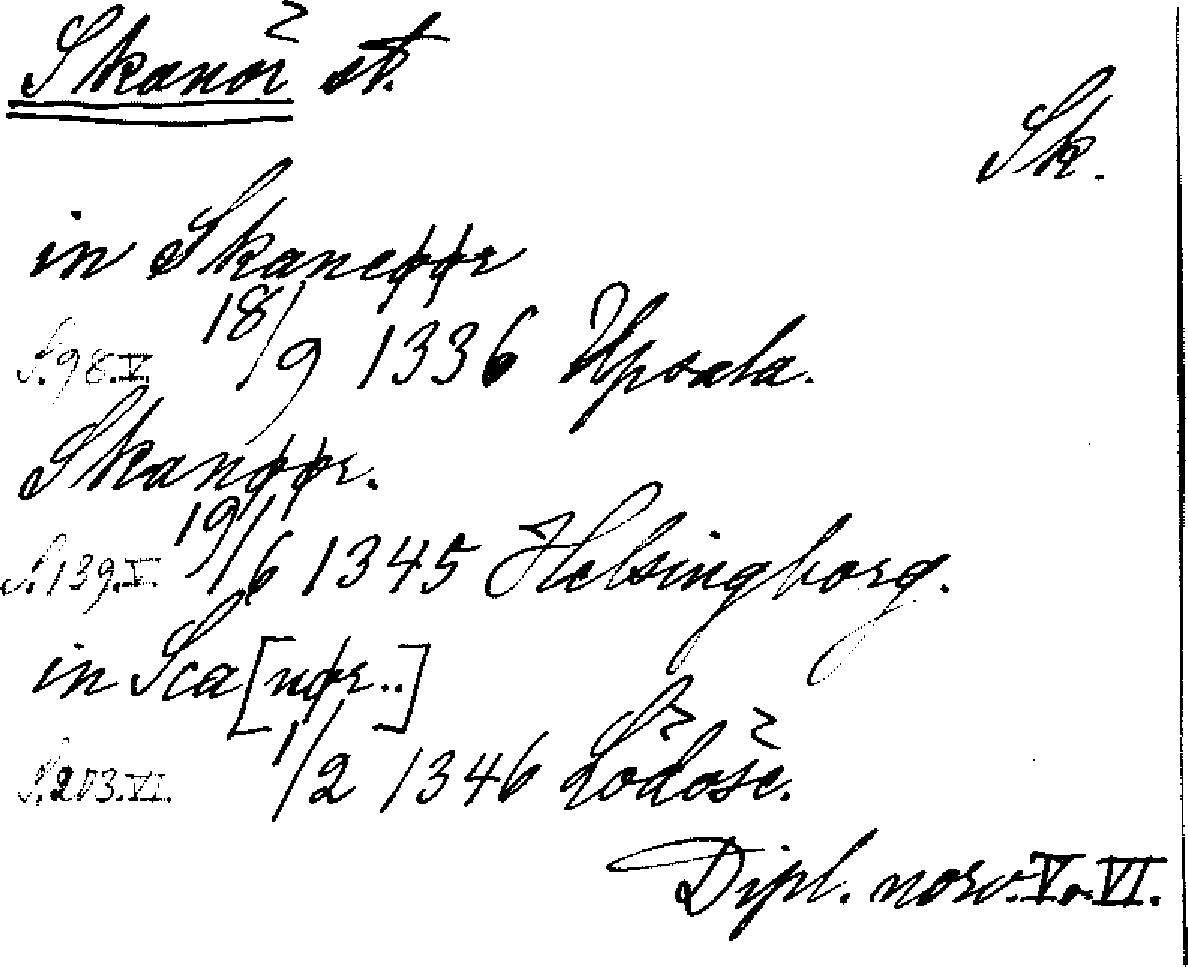 Skanör st.
Sk.
in Skaneøør
S. 98. V. 18/9 1336 Upsala.
Skanøør.
S. 139. V. 19/6 1345 Helsingborg.
in Sca[nør..]
S. 203. VI. 1/2 1346 Lödöse.
Dipl. norv. V o. VI.